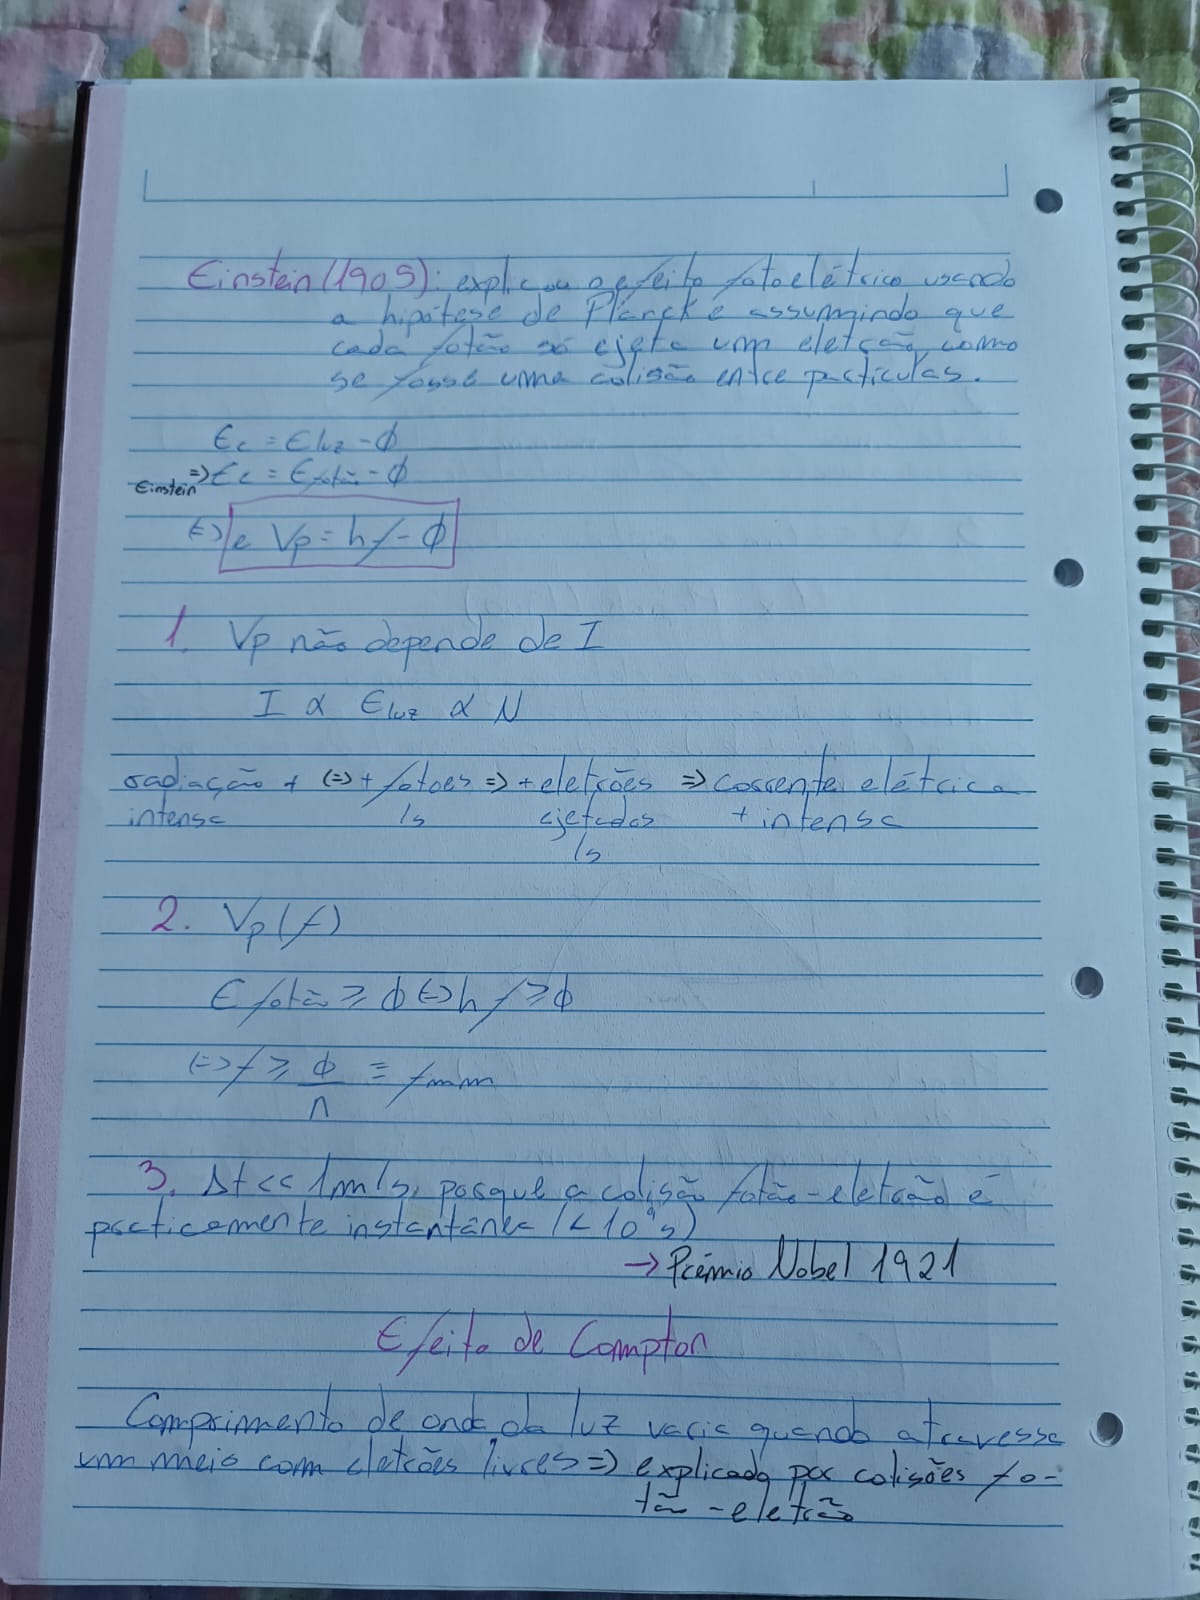 Einstein (1905): explicou o efeito fotoelétrico usando
a hipótese de Planck e assumindo que
cada fotão só ejeta um eletrão, como
se fosse uma colisão entre partículas.
Ec = Eluz - ϕ
Einstein => Ec = Efotão - ϕ
<=> e Vp = hf - ϕ
1. Vp não depende de I
I ∝ Eluz ∝ N
radiação + <=> + fotoes => + eletrões => corrente elétrica
intensa /s ejetados + intensa
/s
2. Vp(f)
Efotão ⩾ ϕ <=> hf ⩾ ϕ
<=> f ⩾ ϕ/h ≡ fmin
3. Δt << 1m/s, porque a colisão fotão-eletrão é
praticamente instantânea (< 10⁻⁹s)
→ Prémio Nobel 1921
Efeito de Compton
Comprimento de onda da luz varia quando atravessa
um meio com eletrões livres => explicado por colisões fo-
tão - eletrão